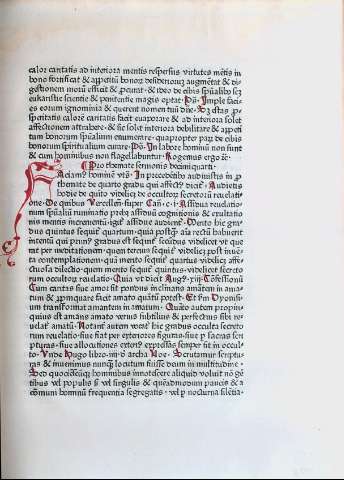 calor caritatis ad interiora mentis respersus virtutes mētis in
bono fortificat & appetitū bonoꝝ desideriūq; augmētat & di-
gestionem moꝝ efficit & ꝓcurat · & ideo de cibis spūalibꝰ scꝫ
eukaristie scientie & penitentie magis optat · Imple faci-
es eorum ignominia & querent nomen tuū dñe ·
spitatio calorē caritatis facit euaporare & ad interiora solet
affectionem attrahere · & sic solet interiora debilitare & appeti
tum bonorum spūalium enumerare · quapropter parꝫ de cibis
bonorum spiritualium curare · In labore hominū non sunt
& cum hominibus non flagellabuntur · Rogemus ergo
Pro themate sermonis decimiquarti ·
Faciam hominē · In precedētibꝰ audiuistis in ꝓ
themate de quarto gradu qui affect⁹ dicit᷑ · Audietis
hodie de quito videlicꝫ de occultoꝝ secretoꝝ reuelati-
one · De quibus super · c · i · Assidua reuelatio-
num spūaliū ruminatio prebꝫ assiduā cognitionis & exultatio
nis mentis incrementū · igit᷑ assidue audiem⁹ · Merito hic gra-
dus quintus sequit᷑ quartum · quia postq̄ aīa rectū habuerit
intentū qui primꝰ gradus est sequit᷑ secūdus videlicet vt que
rat per meditationem · quem tercius sequit᷑ videlicꝫ post inuē
ta contemplationem · quā merito sequit᷑ quartus videlicꝫ affe
ctuosa dilectio · quem merito sequit᷑ quintus · videlicet secreto
rum occultoꝝ reuelatio · Quia vt dicit Aug⁹ · xiii · Cōfessionū
Cum caritas siue amor sit pondus inclinans amātem in ama
tum & ꝓpinquare facit amato quātū potest · Et Dyonisiū
um transformat amantem in amatum · Quāto autem propin-
quius est amans amato verus subtilius & perfectius sibi re-
uelat᷑ amatū · Notant᷑ autem hic gradus occulta secreto
rum reuelatio · siue fiat per exteriores figuras · siue ꝑ sacras scri
pturas · siue allocutiones exterī⁹ expressas semper sit in occul-
to · Unde Hugo libro · iiii · ꝺ archa Noe · Scrutamur scriptu-
ras & inuenimus nunq̄ locutum fuisse deum in multitudine ·
Sed quociēscūq; hominibus innotescere aliquid voluit nō gē
tibus vel populis sꝫ vel singulis & quēadmodum paucis & a
cōmuni hominū frequentia segregatis · vel ꝑ nocturna silētia ·